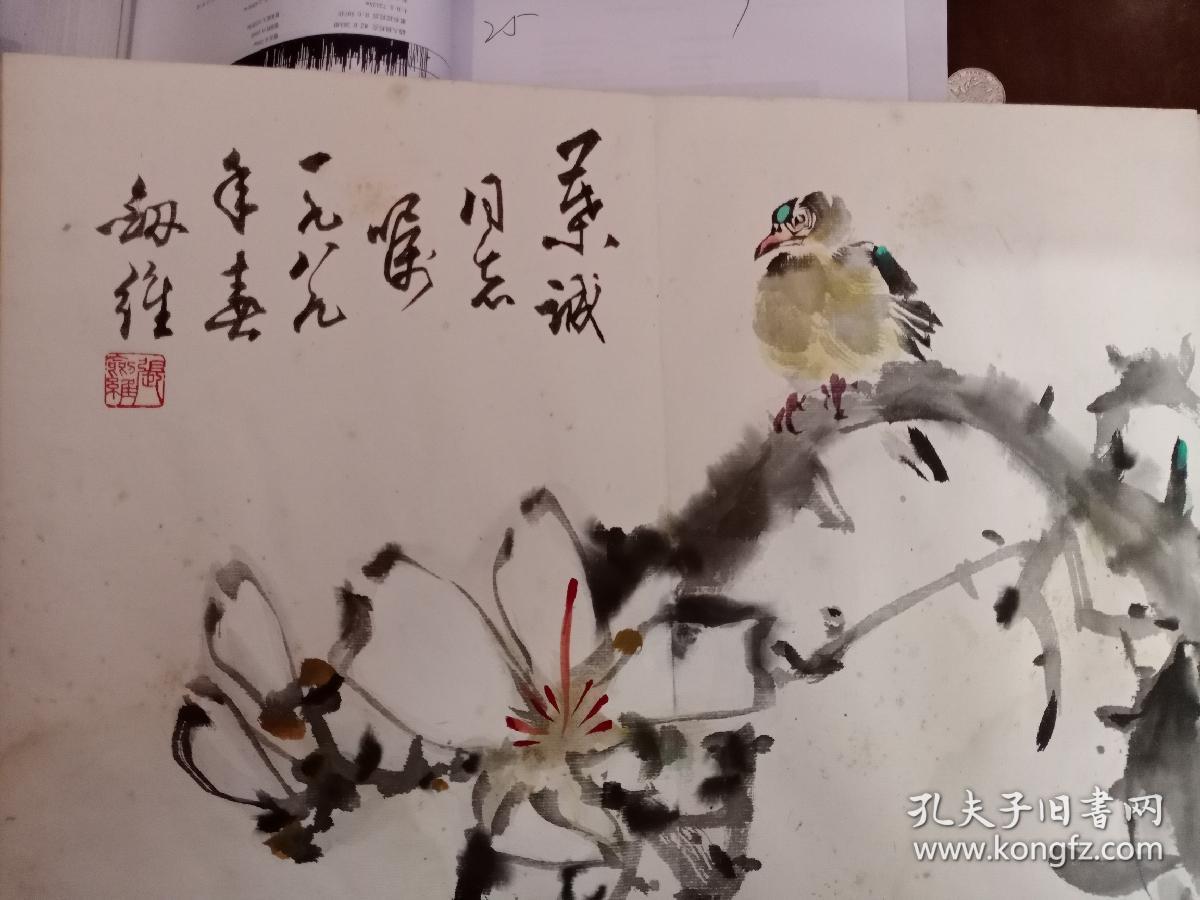 葉诚
同志
嘱
一九八九
年春
釼维
張劍維
25
孔夫子旧书网
www.kongfz.com